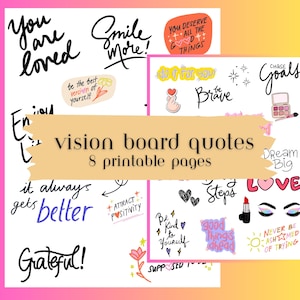 You
are
loved
Smile
More!
YOU DESERVE
ALL THE
GOOD
THINGS
be the best
version of
yourself
CHASE
Goals
Be
Brave
Enjoy
vision board quotes
8 printable pages
it always
gets better
ATTRACT
POSITIVITY
DREAM
BIG
LOVE
Steps
Be
Kind to
Yourself
good
things
ahead
NEVER BE
ASHAMED
OF TRYING
Grateful!
SUPPOSED TO BE